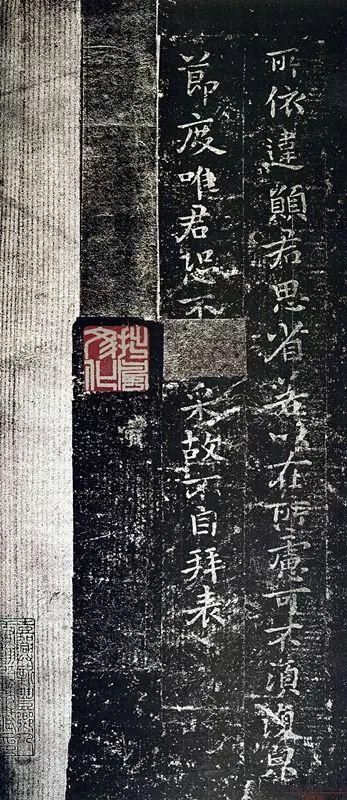 所依違願君思省若以在所慮可不須復皃
節度唯君恐不采故不自拜表